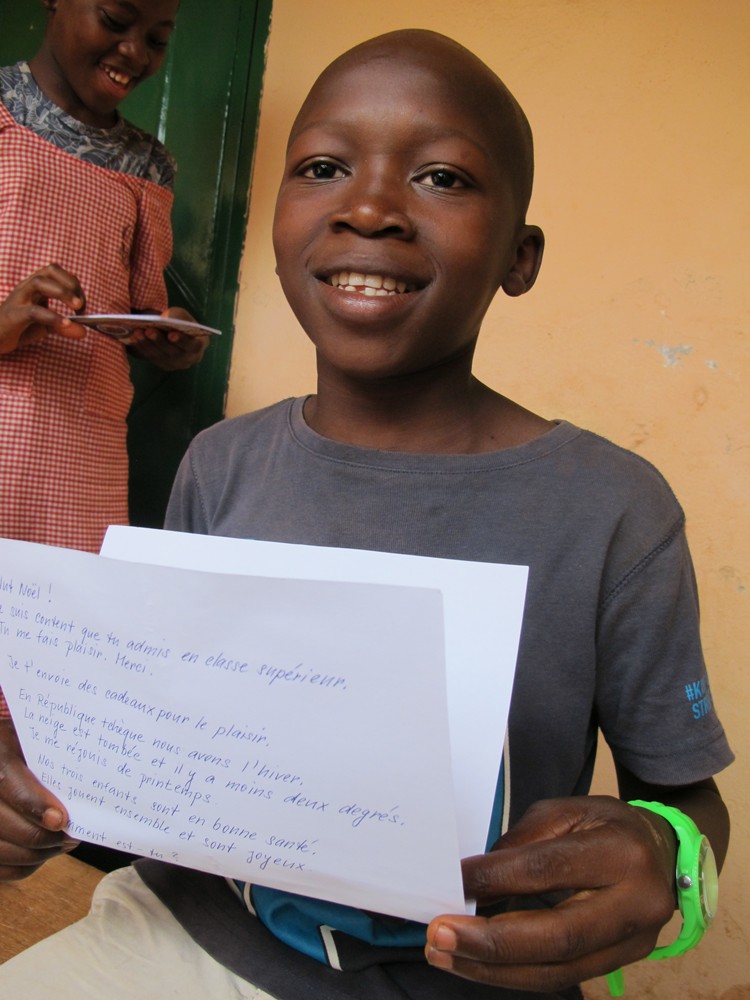 Noël !
suis content que tu admis en classe supérieur.
Tu me fais plaisir. Merci.
Je t'envoie des cadeaux pour le plaisir.
En République tchèque nous avons l'hiver.
La neige est tombée et il y a moins deux degrés.
Je me réjouis de printemps.
Nos trois enfants sont en bonne santé.
Elles jouent ensemble et sont joyeux.
est-tu ?